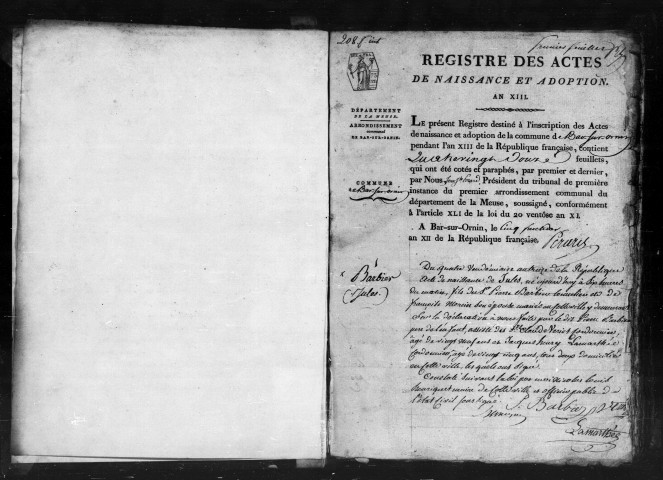 208 f
premier feuillet
REGISTRE DES ACTES
DE NAISSANCE ET ADOPTION.
AN XIII.
DÉPARTEMENT
DE LA MEUSE.
ARRONDISSEMENT
DE BAR-SUR-ORNIN.
COMMUNE
de Bar-sur-ornin
LE présent Registre destiné à l'inscription des Actes
de naissance et adoption de la commune de Bar-sur-ornin
pendant l'an XIII de la République française, contient
Quatrevingt Douze feuillets,
qui ont été cotés et paraphés, par premier et dernier,
par Nous Président du tribunal de première
instance du premier arrondissement communal du
département de la Meuse, soussigné, conformément
à l'article XLI de la loi du 20 ventôse an XI.
A Bar-sur-Ornin, le cinq fructidor
an XII de la République française.
Barbier
(Jules.)
Du quatre Vendémiaire an treize de la République
Acte de naissance de Jules, né aujourd'huy à sept heures
du matin, fils du Sr. Pierre Barbier et de
françoise son épouse mariés en cette ville y demeurant
Sur la déclaration à nous faite par ledit Pierre Barbier
père de l'enfant, assisté des Srs. Claude
âgé de vingt neuf ans et Jacques henry Lamarthée
Cordonnier, âgé de vingt cinq ans, tous deux domiciliés
en cette ville, lesquels ont signé.
Constaté suivant la loi par
maire de cette ville et officier public de
l'état civil soussigné.
P. Barbier
Lamarthée